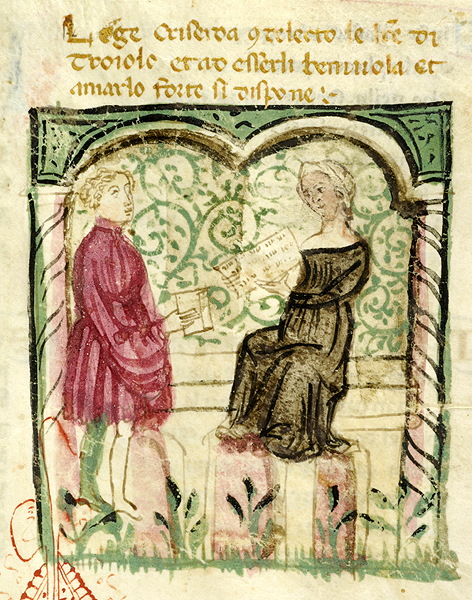 Lege Criseida (et) relecto le l(ett)e(re) di
Troiolo et ad esserli benivola et
amarlo forte si dispone :